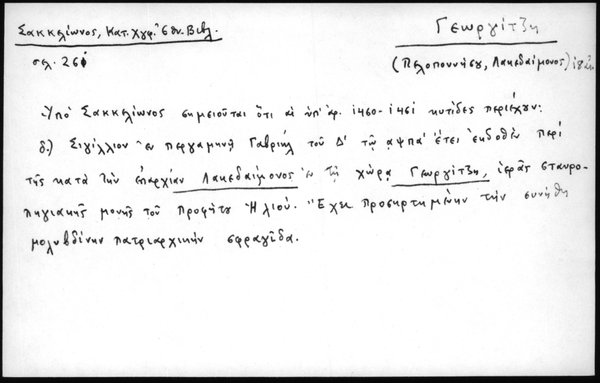 Σακκελίωνος, Κατ. Χγφ. Ἐθν. Βιβλ.
Γεωργίτζη
σελ. 261
(Πελοποννήσου, Λακεδαίμονος)
Ὑπό Σακκελίωνος σημειοῦται ὅτι αἱ ὑπ' ἀρ. 1460-1461 κυτίδες περιέχουν:
δ.) Σιγίλλιον ἐν περγαμηνῇ Γαβριήλ τοῦ Δ' τῷ αψπα' ἔτει ἐκδοθέν περί
τῆς κατά τήν ἐπαρχίαν Λακεδαίμονος ἐν τῇ χώρᾳ Γεωργίτζη, ἱερᾶς σταυρο-
πηγιακῆς μονῆς τοῦ Προφήτου Ἠλιού. Ἔχει προσηρτημένην τήν συνήθη
μολυβδίνην πατριαρχικήν σφραγῖδα.